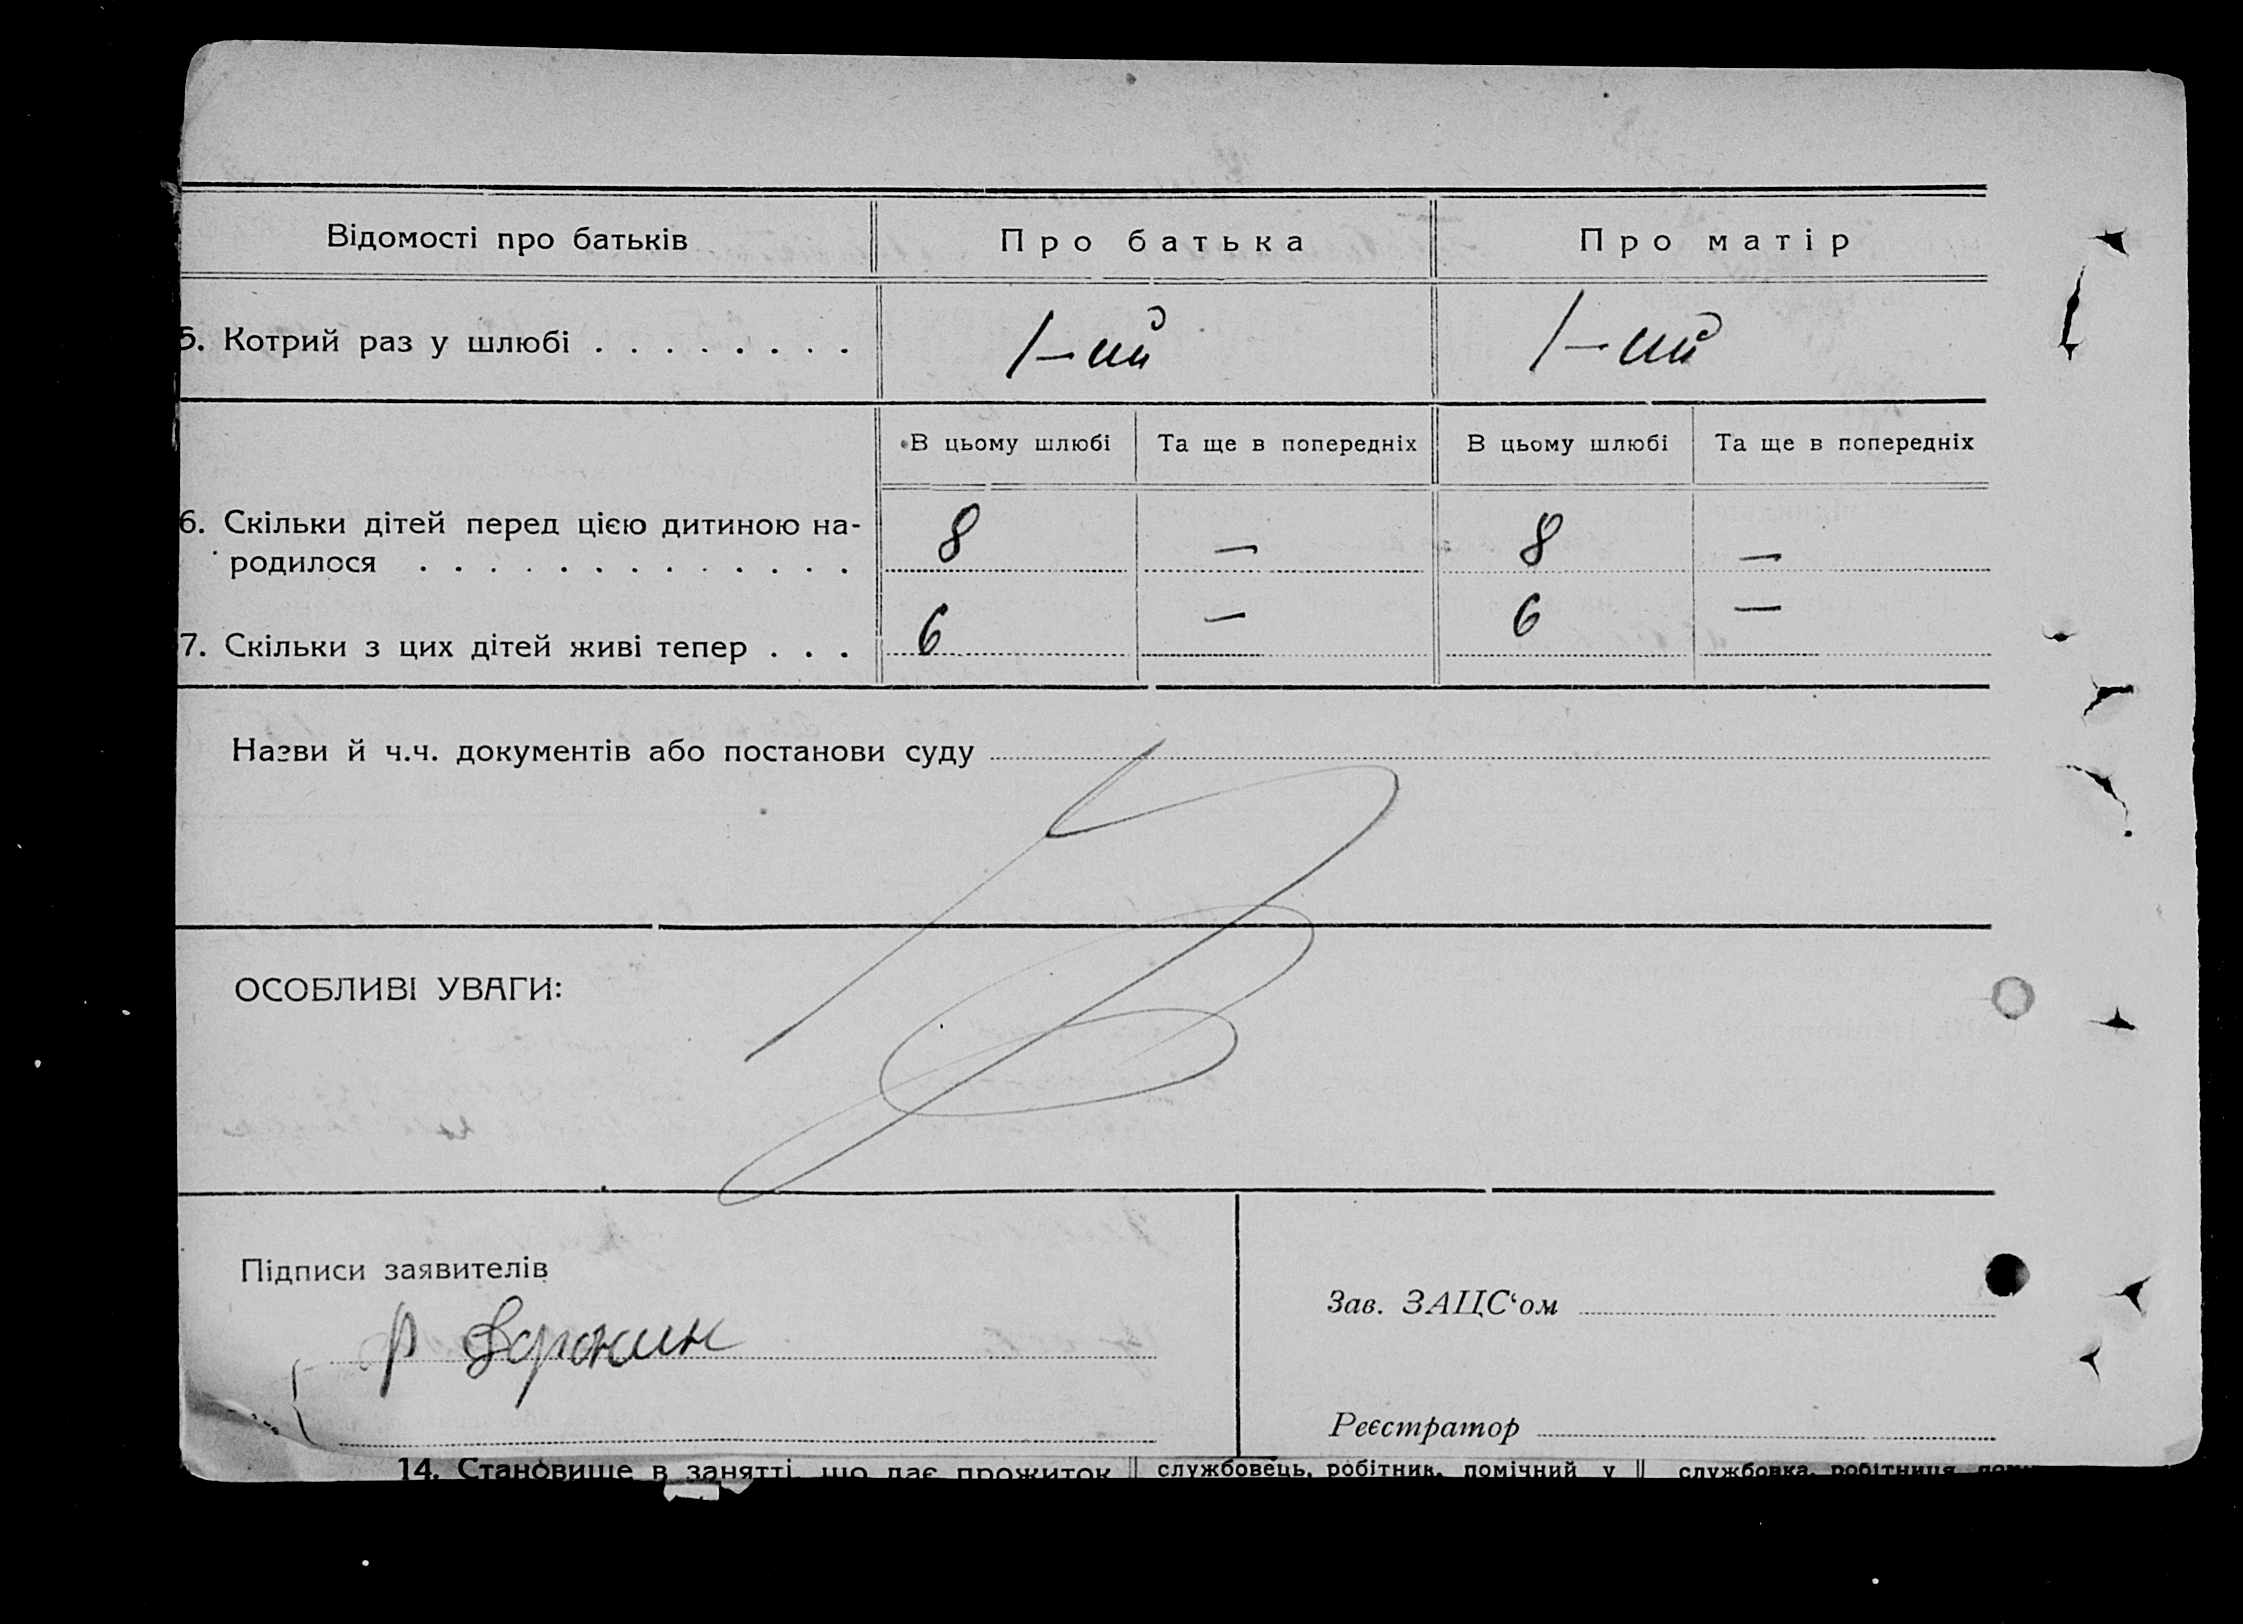 Відомості про батьків Про батька Про матір
5. Котрий раз у шлюбі . . . . . . . . 1-ий 1-ий
В цьому шлюбі Та ще в попередніх В цьому шлюбі Та ще в попередніх
6. Скільки дітей перед цією дитиною на-
родилося . . . . . . . . . . . . . 8 — 8 —
7. Скільки з цих дітей живі тепер . . . 6 — 6 —
Назви й ч.ч. документів або постанови суду
ОСОБЛИВІ УВАГИ:
Підписи заявителів
Зав. ЗАЦС‘ом
Р
Реєстратор
14. Становище в занятті, що дає прожиток службовець, робітник, помічний у службовка, робітниця